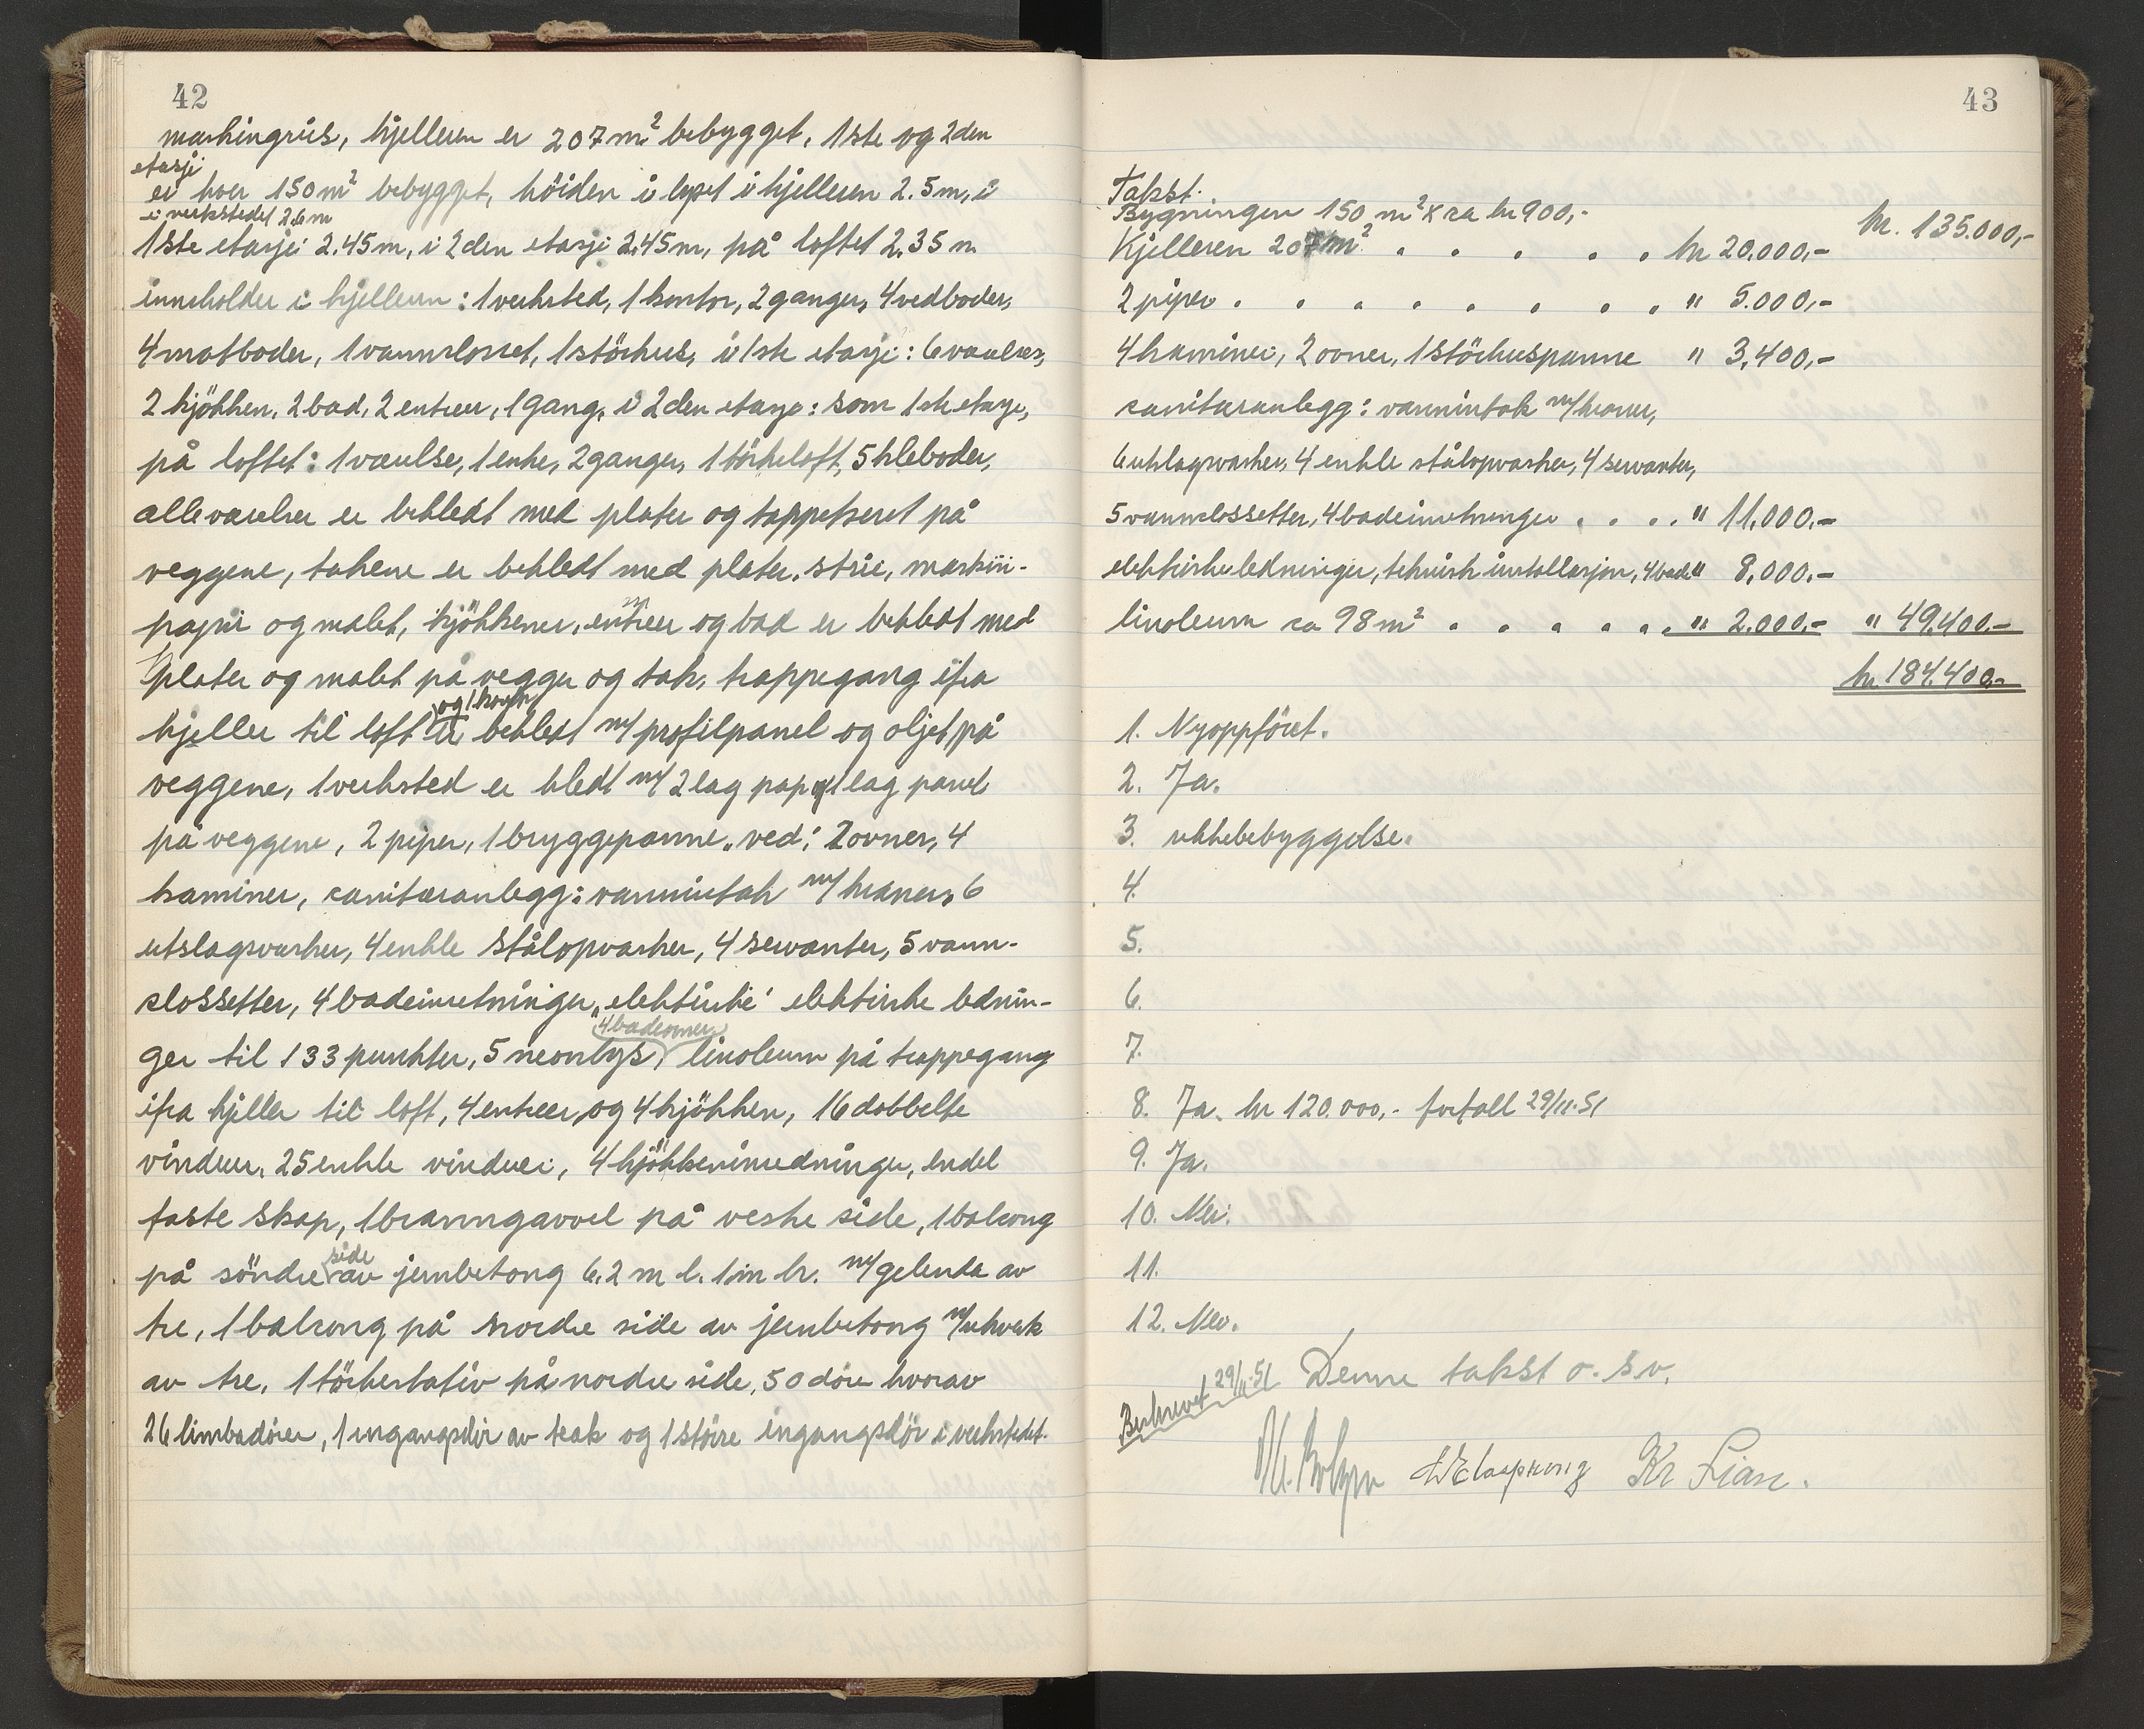 42
maskingrüs, kjelleren er 207 m² bebygget, 1ste og 2den
etasje
er hver 150 m² bebygget, höiden i lyset i kjelleren 2.5 m, i
i verkstedet 2.6 m
1ste etasje 2.45 m, i 2den etasje 2.45 m, på loftet 2.35 m
inneholder i kjelleren: 1 verksted, 1 kontor, 2 ganger, 4 vedboder,
4 matboder, 1 vannclosset, 1 störhus, i 1ste etasje: 6 værelser,
2 kjökken, 2 bad, 2 entreer, 1 gang, i 2den etasje: som 1ste etasje,
på loftet: 1 værelse, 1 enke, 2 ganger, 1 törkeloft, 5 kleboder,
alle værelser er bekledt med plater og tappetseret på
veggene, takene er bekledt med plater, strie, maskin-
papir og malet, kjökkener, entreer og bad er bekledt med
plater og malet på vegger og tak, trappegang ifra
og 1 kontor
kjeller til loft er bekledt m/ profilpanel og oljet på
veggene, 1 verksted er kledt m/ 2 lag pap og 1 lag panel
på veggene, 2 piper, 1 bryggepanne, "ved," 2 ovner, 4
kaminer, sanitæranlegg: vanninntak m/ kraner, 6
utslagsvasker, 4 enkle stålopvasker, 4 servanter, 5 vann-
clossetter, 4 badeinretninger, "elektriske" elektriske lednin-
4 badeovner
ger til 133 punkter, 5 neonlys, linoleum på trappegang
ifra kjeller til loft, 4 entreer, og 4 kjökken, 16 dobbelte
vinduer, 25 enkle vinduer, 4 kjökkeninnredninger, endel
faste skap, 1 branngavvel på vestre side, 1 balcong
side
på söndre av jernbetong 6.2 m l. 1 m br. m/ gelender av
tre, 1 balcong på nordre side av jernbetong m/ rekverk
av tre, 1 törkestativ på nordre side, 50 döre hvorav
26 limbadörer, 1 ingangsdör av teak og 1 störe ingangsdör i verkstedet.
43
Takst.
Bygningen 150 m² x ca kr 900,- kr. 135.000,-
Kjelleren 207 m² . . . . . kr 20.000,-
2 piper . . . . . . . . " 5.000,-
4 kaminer, 2 ovner, 1 störhuspanne " 3,400,-
sanitæranlegg: vanninntak m/ kraner,
6 utslagsvasker, 4 enkle stålopvasker, 4 servanter,
5 vannclossetter, 4 badeinretninger . . . . " 11.000.-
elektriske ledninger, teknisk installasjon, 4 bade " 8,000.-
linoleum ca 98 m² . . . . . . " 2.000,- " 49.400.-
kr. 184.400,-
1. Nyoppföret.
2. Ja.
3. rekkebebyggelse.
4.
5.
6.
7.
8. Ja. kr 120.000,- forfall 29/11-51
9. Ja.
10. Nei.
11.
12. Nei.
Beskrevet 29/11-51 Denne takst o. s v.
Kr Lian.